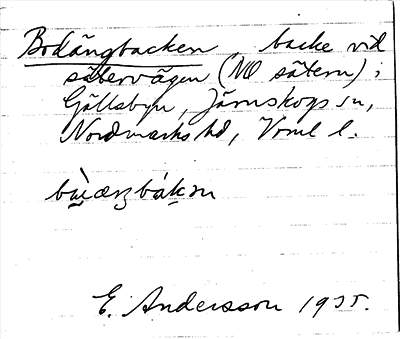 Bodängbacken, backe vid
sätervägen (NO sätern) i
Gällsbyn, Järnskogs sn,
Nordmarks hd, Vrml l.
E. Andersson 1935.